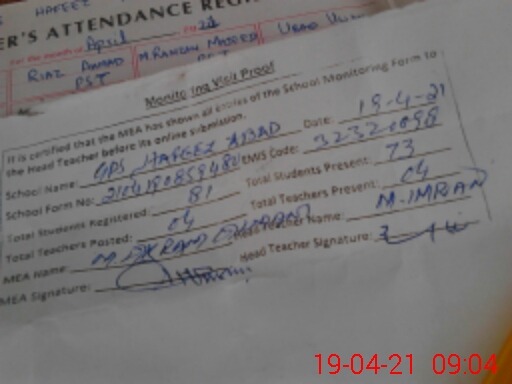 HAFEEZ
ER'S ATTENDANCE REG
For the month of April 21
RIAZ AHMAD M. RAMZAN MAJEED UBAD
PST PST
Monito ing Visit Proof
It is certified that the MEA has shown all entries of the School Monitoring Form to
the Head Teacher before its online submission.
School Name: GPS HAFEEZ ABAD Date: 19-4-21
School Form No: EMIS Code: 32320098
Total Students Registered: 81 Total Students Present: 73
Total Teachers Posted: 04 Total Teachers Present: 04
MEA Name: M. Head Teacher Name: M. IMRAN
MEA Signature: Head Teacher Signature:
19-04-21 09:04